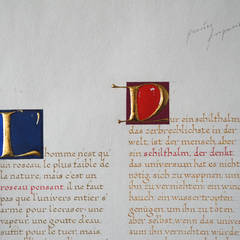 L'homme n'est qu'
un roseau, le plus faible de
la nature, mais c'est un
roseau pensant. il ne faut
pas que l'univers entier s'
arme pour l'ecraser: une
vapeur, une goutte d'eau
suffit pour le tuer. mais
Nur ein schilfhalm,
das zerbrechlichste in der
welt, ist der mensch, aber
ein schilfhalm, der denkt.
das universum hat es nicht
nötig, sich zu wappnen, um
ihn zu vernichten: ein wind
hauch, ein wassertropfen
genügen, um ihn zu töten.
aber selbst, wenn das univer
sum ihn vernichten würde